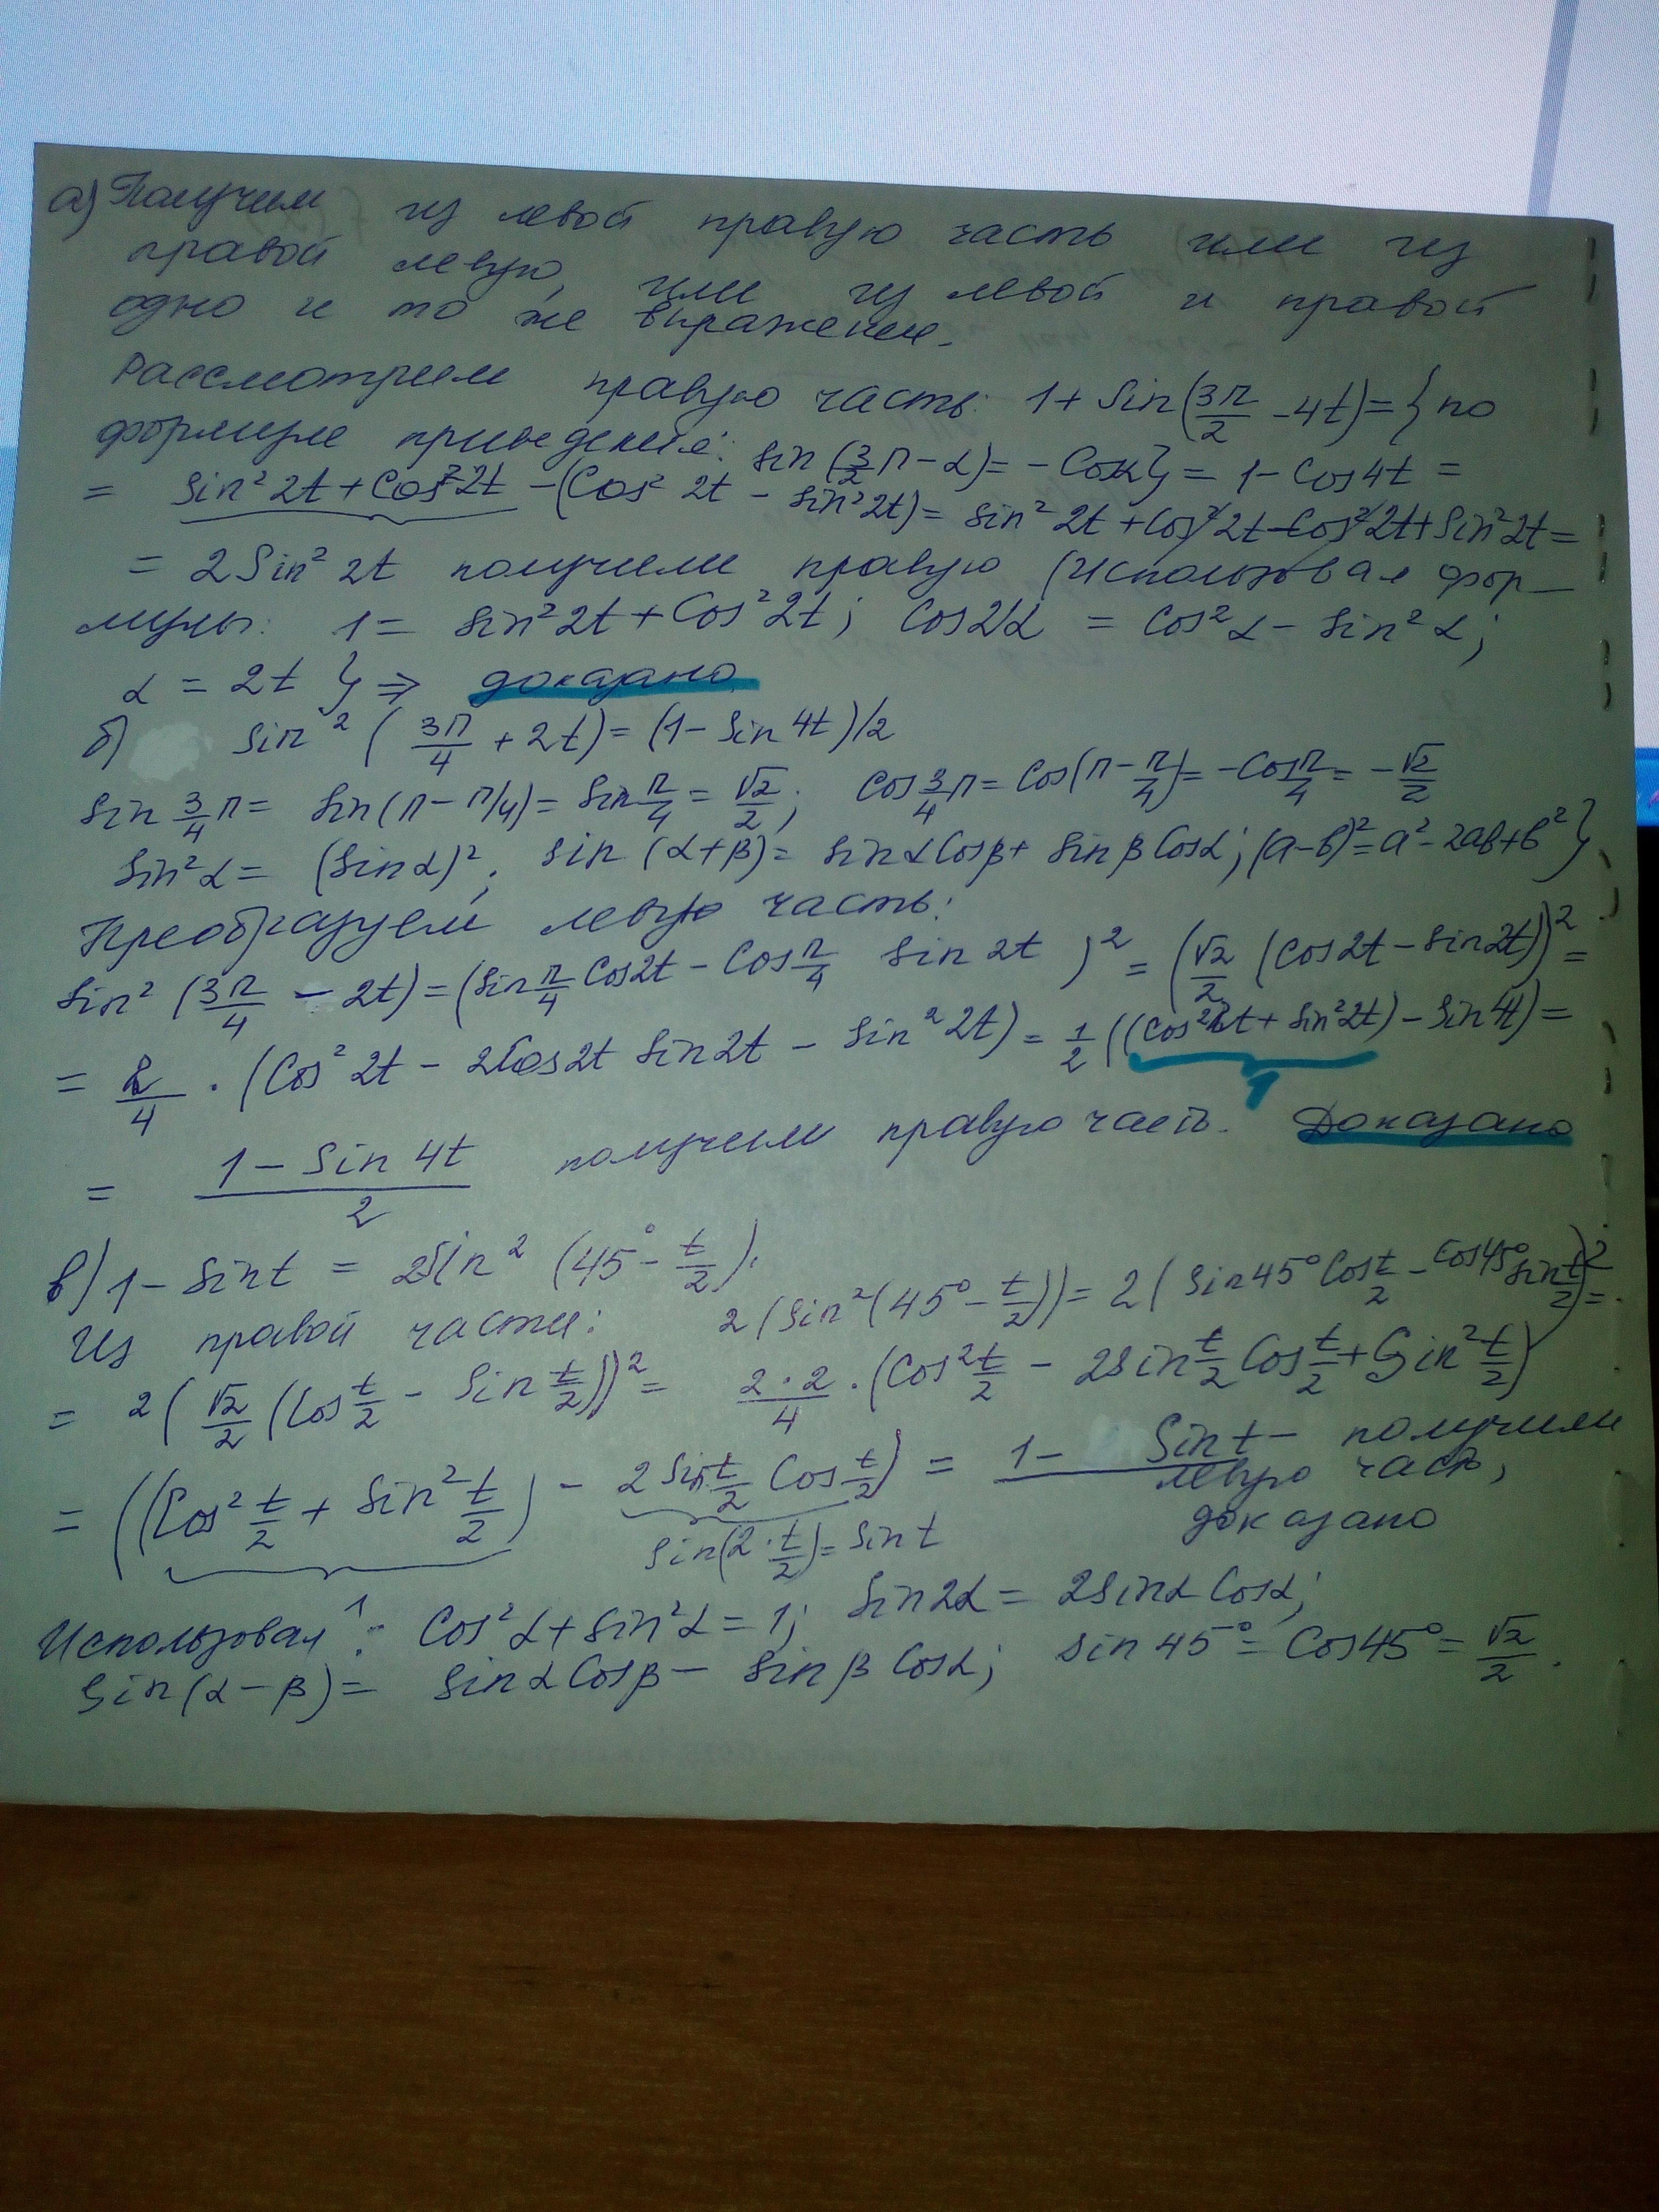 а) Получим из левой правую часть или из
правой левую, или из левой и правой
одно и то же выражение.
Рассмотрим правую часть: 1 + Sin(3π/2 - 4t) = { по
формуле приведения: sin(3/2 π - α) = - Cosα } = 1 - Cos 4t =
= Sin² 2t + Cos² 2t - (Cos² 2t - sin² 2t) = sin² 2t + Cos² 2t - Cos² 2t + Sin² 2t =
= 2 Sin² 2t получили правую (Использовал фор-
мулы: 1 = sin² 2t + Cos² 2t; Cos 2α = Cos² α - sin² α;
α = 2t } ⇒ доказано
б) Sin² (3π/4 + 2t) = (1 - Sin 4t)/2
Sin 3/4 π = Sin(π - π/4) = Sin π/4 = √2/2; Cos 3/4 π = Cos(π - π/4) = - Cos π/4 = - √2/2
Sin² α = (Sin α)²; Sin (α + β) = sin α Cos β + sin β Cos α; (a - b)² = a² - 2ab + b² }
Преобразуем левую часть:
Sin² (3π/4 - 2t) = (Sin π/4 Cos 2t - Cos π/4 Sin 2t)² = (√2/2 (Cos 2t - Sin 2t))² =
= 2/4 · (Cos² 2t - 2Cos 2t Sin 2t - Sin² 2t) = 1/2 ((Cos² 2t + sin² 2t) - Sin 4t) =
1
= (1 - Sin 4t)/2 получили правую часть. Доказано
в) 1 - Sin t = 2Sin² (45° - t/2).
Из правой части: 2(Sin²(45° - t/2)) = 2(Sin 45° Cos t/2 - Cos 45° Sin t/2)² =
= 2(√2/2 (Cos t/2 - Sin t/2))² = 2·2/4 · (Cos² t/2 - 2Sin t/2 Cos t/2 + Sin² t/2)
= ((Cos² t/2 + Sin² t/2) - 2 Sin t/2 Cos t/2) = 1 - Sin t - получили
левую часть,
1 Sin(2 · t/2) = Sin t доказано
Использовал: Cos² α + Sin² α = 1; Sin 2α = 2Sin α Cos α;
Sin(α - β) = Sin α Cos β - Sin β Cos α; Sin 45° = Cos 45° = √2/2.